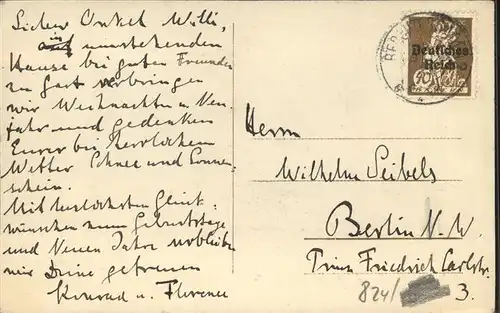 Lieber Onkel Willi,
in umstehenden
Hause bei guten Freunden
zu Gast verbringen
wir Weihnachten u. Neu-
jahr und gedenken
Eurer bei herrlichem
Wetter Schnee und Sonnen-
schein.
Mit herzlichsten Glück-
wünschen zum Geburtstage
und Neuen Jahre verbleiben
wir Deine getreuen
Konrad u. Florence
Deutsches
Reich
Herrn
Wilhelm Seibels
Berlin N.W.
Prinz Friedrich Carlstr.
3.
824/